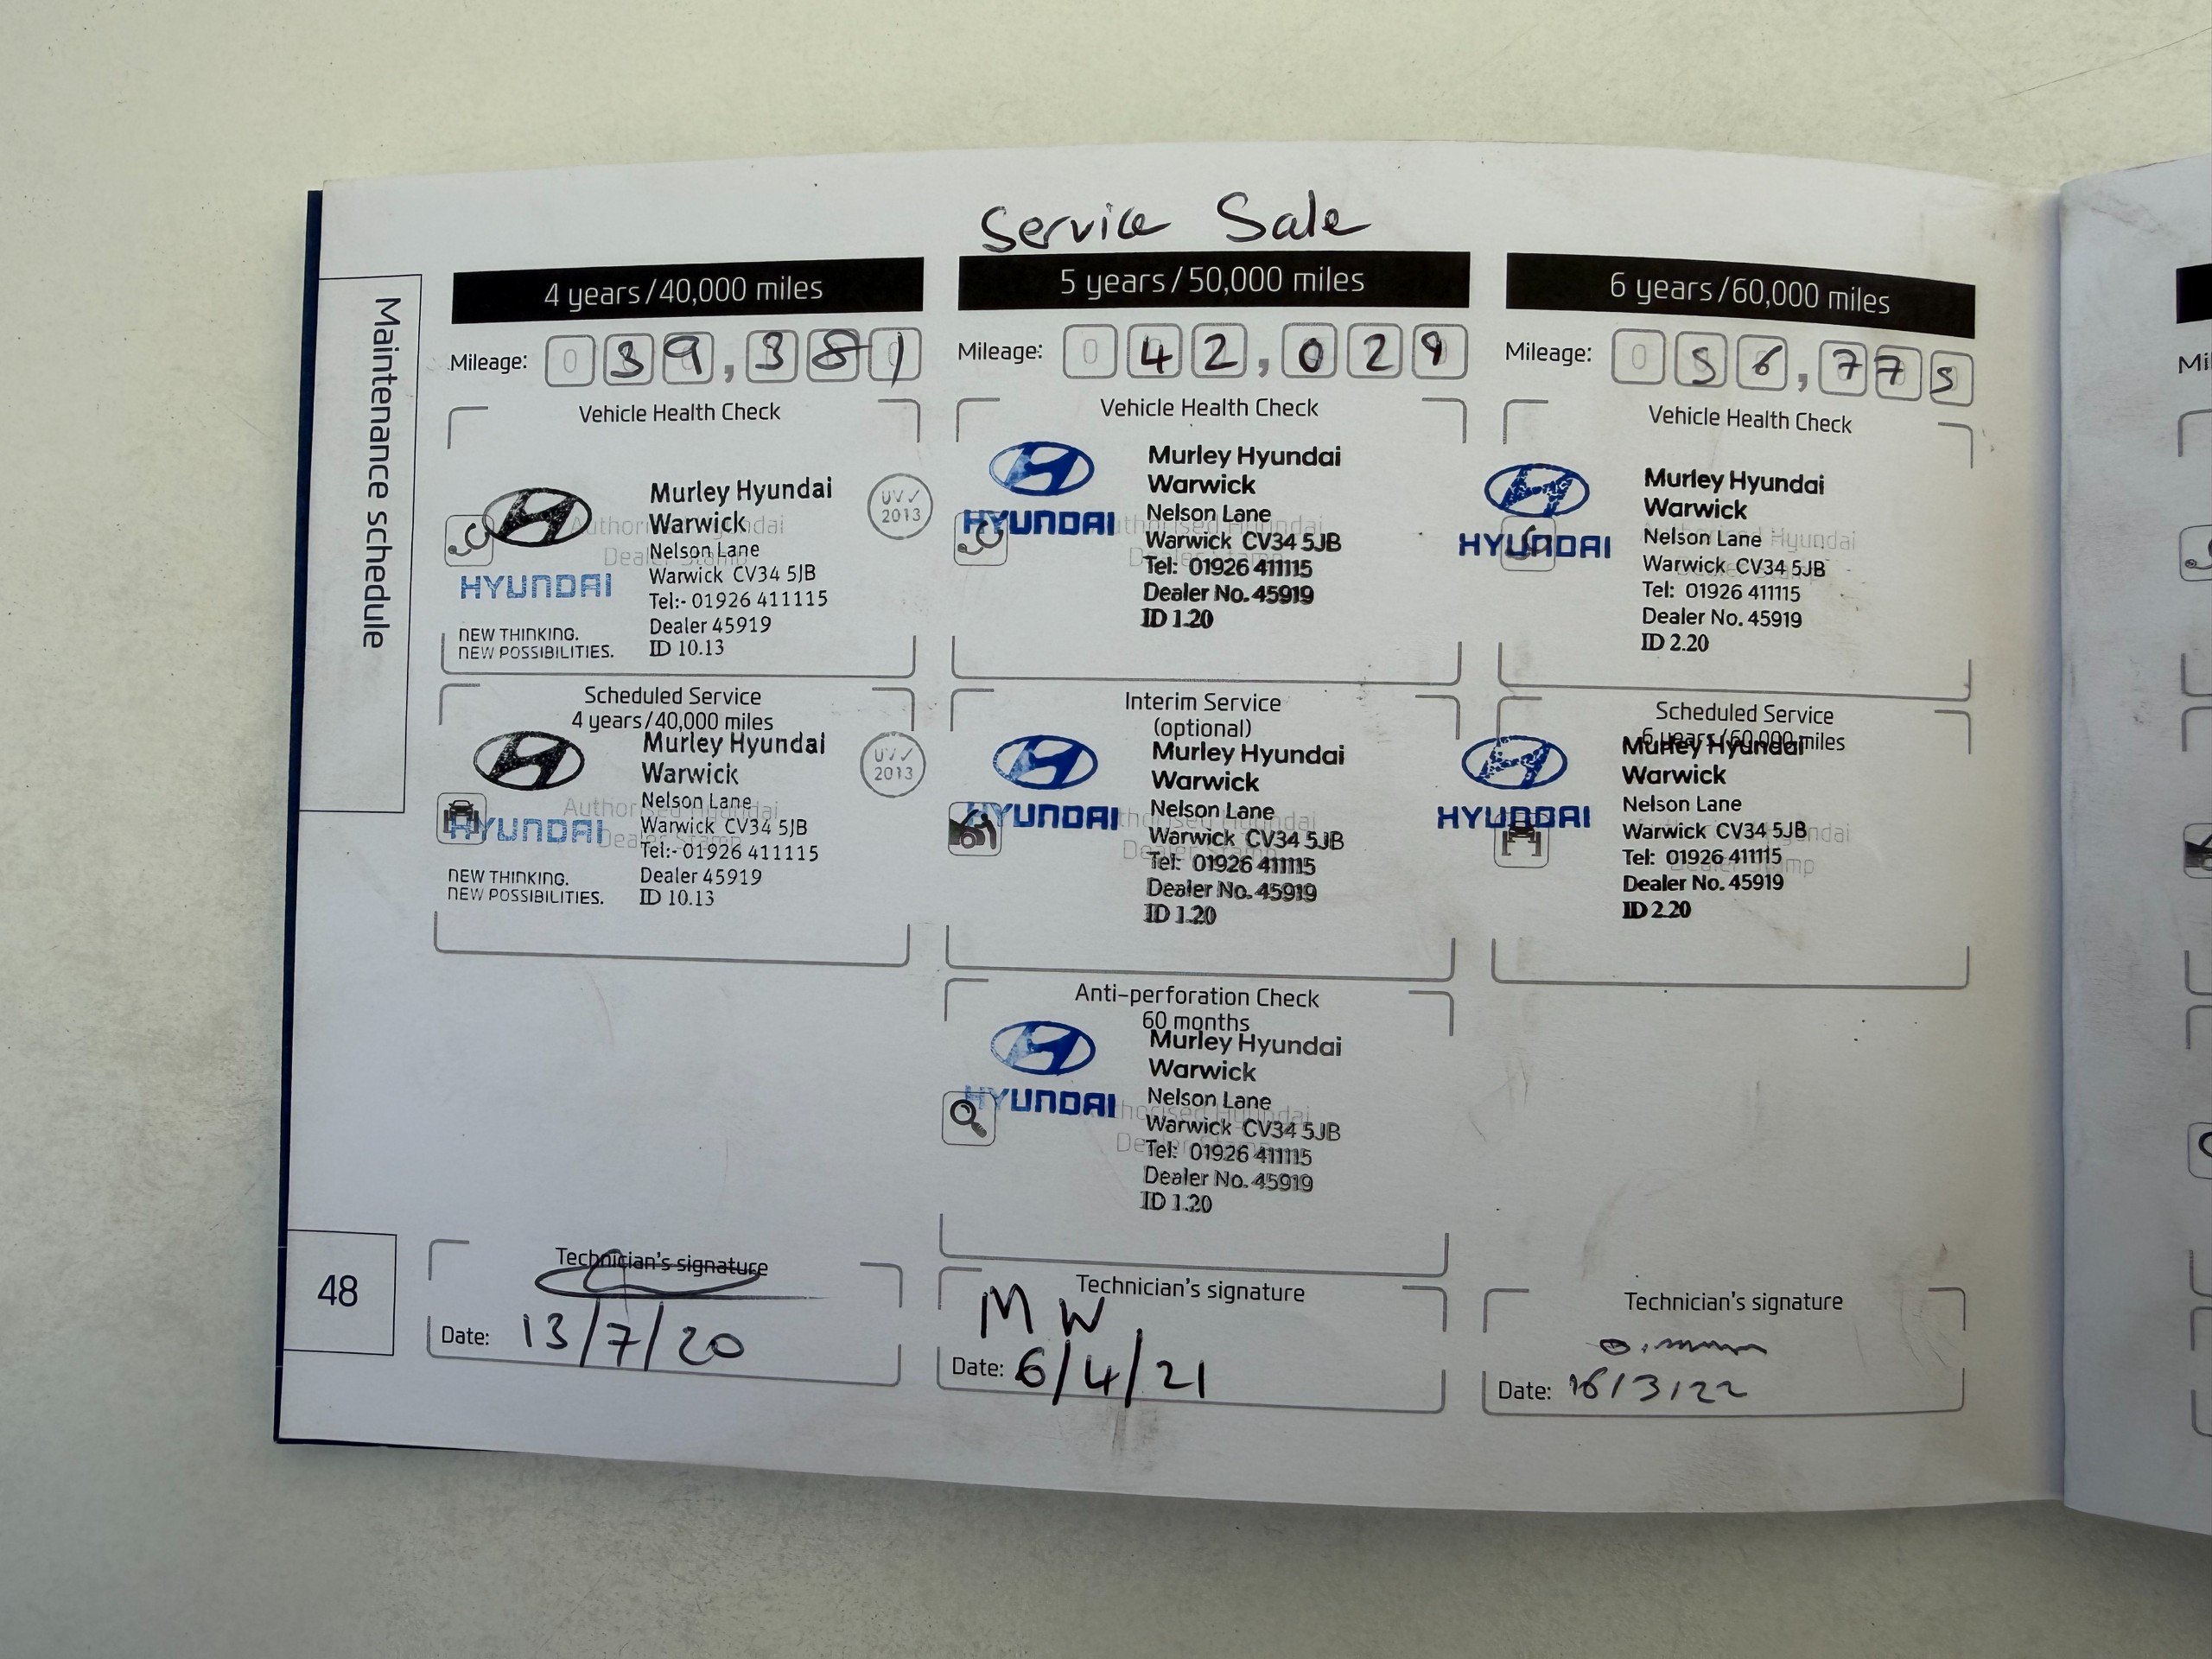 Service Sale
Maintenance schedule
4 years/40,000 miles
Mileage: 039,381
Vehicle Health Check
Murley Hyundai
Warwick
Nelson Lane
Warwick CV34 5JB
Tel:- 01926 411115
Dealer 45919
ID 10.13
HYUNDAI
NEW THINKING.
NEW POSSIBILITIES.
UV✓
2013
Authorised Hyundai
Dealer Stamp
Scheduled Service
4 years/40,000 miles
Murley Hyundai
Warwick
Nelson Lane
Warwick CV34 5JB
Tel:- 01926 411115
Dealer 45919
ID 10.13
HYUNDAI
NEW THINKING.
NEW POSSIBILITIES.
UV✓
2013
Authorised Hyundai
Dealer Stamp
Technician's signature
Date: 13/7/20
5 years/50,000 miles
Mileage: 042,029
Vehicle Health Check
Murley Hyundai
Warwick
Nelson Lane
Warwick CV34 5JB
Tel: 01926 411115
Dealer No. 45919
ID 1.20
HYUNDAI
Authorised Hyundai
Dealer Stamp
Interim Service
(optional)
Murley Hyundai
Warwick
Nelson Lane
Warwick CV34 5JB
Tel: 01926 411115
Dealer No. 45919
ID 1.20
HYUNDAI
Authorised Hyundai
Dealer Stamp
Anti-perforation Check
60 months
Murley Hyundai
Warwick
Nelson Lane
Warwick CV34 5JB
Tel: 01926 411115
Dealer No. 45919
ID 1.20
HYUNDAI
Authorised Hyundai
Dealer Stamp
Technician's signature
MW
Date: 6/4/21
6 years/60,000 miles
Mileage: 056,775
Vehicle Health Check
Murley Hyundai
Warwick
Nelson Lane
Warwick CV34 5JB
Tel: 01926 411115
Dealer No. 45919
ID 2.20
HYUNDAI
Authorised Hyundai
Dealer Stamp
Scheduled Service
6 years/60,000 miles
Murley Hyundai
Warwick
Nelson Lane
Warwick CV34 5JB
Tel: 01926 411115
Dealer No. 45919
ID 2.20
HYUNDAI
Authorised Hyundai
Dealer Stamp
Technician's signature
Date: 16/3/22
48